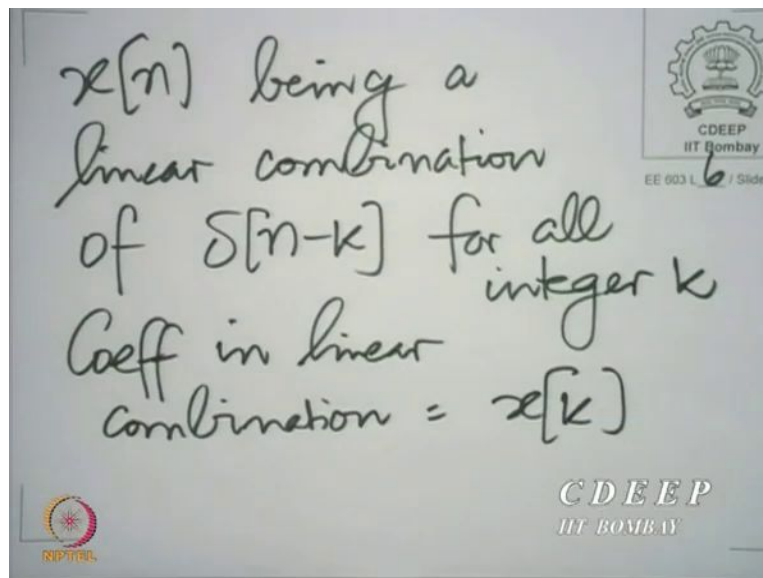 x[n] being a
linear combination
of δ[n-k] for all
integer k
Coeff in linear
combination = x[k]
CDEEP
IIT Bombay
EE 603 L 6 / Slide
CDEEP
IIT BOMBAY
NPTEL